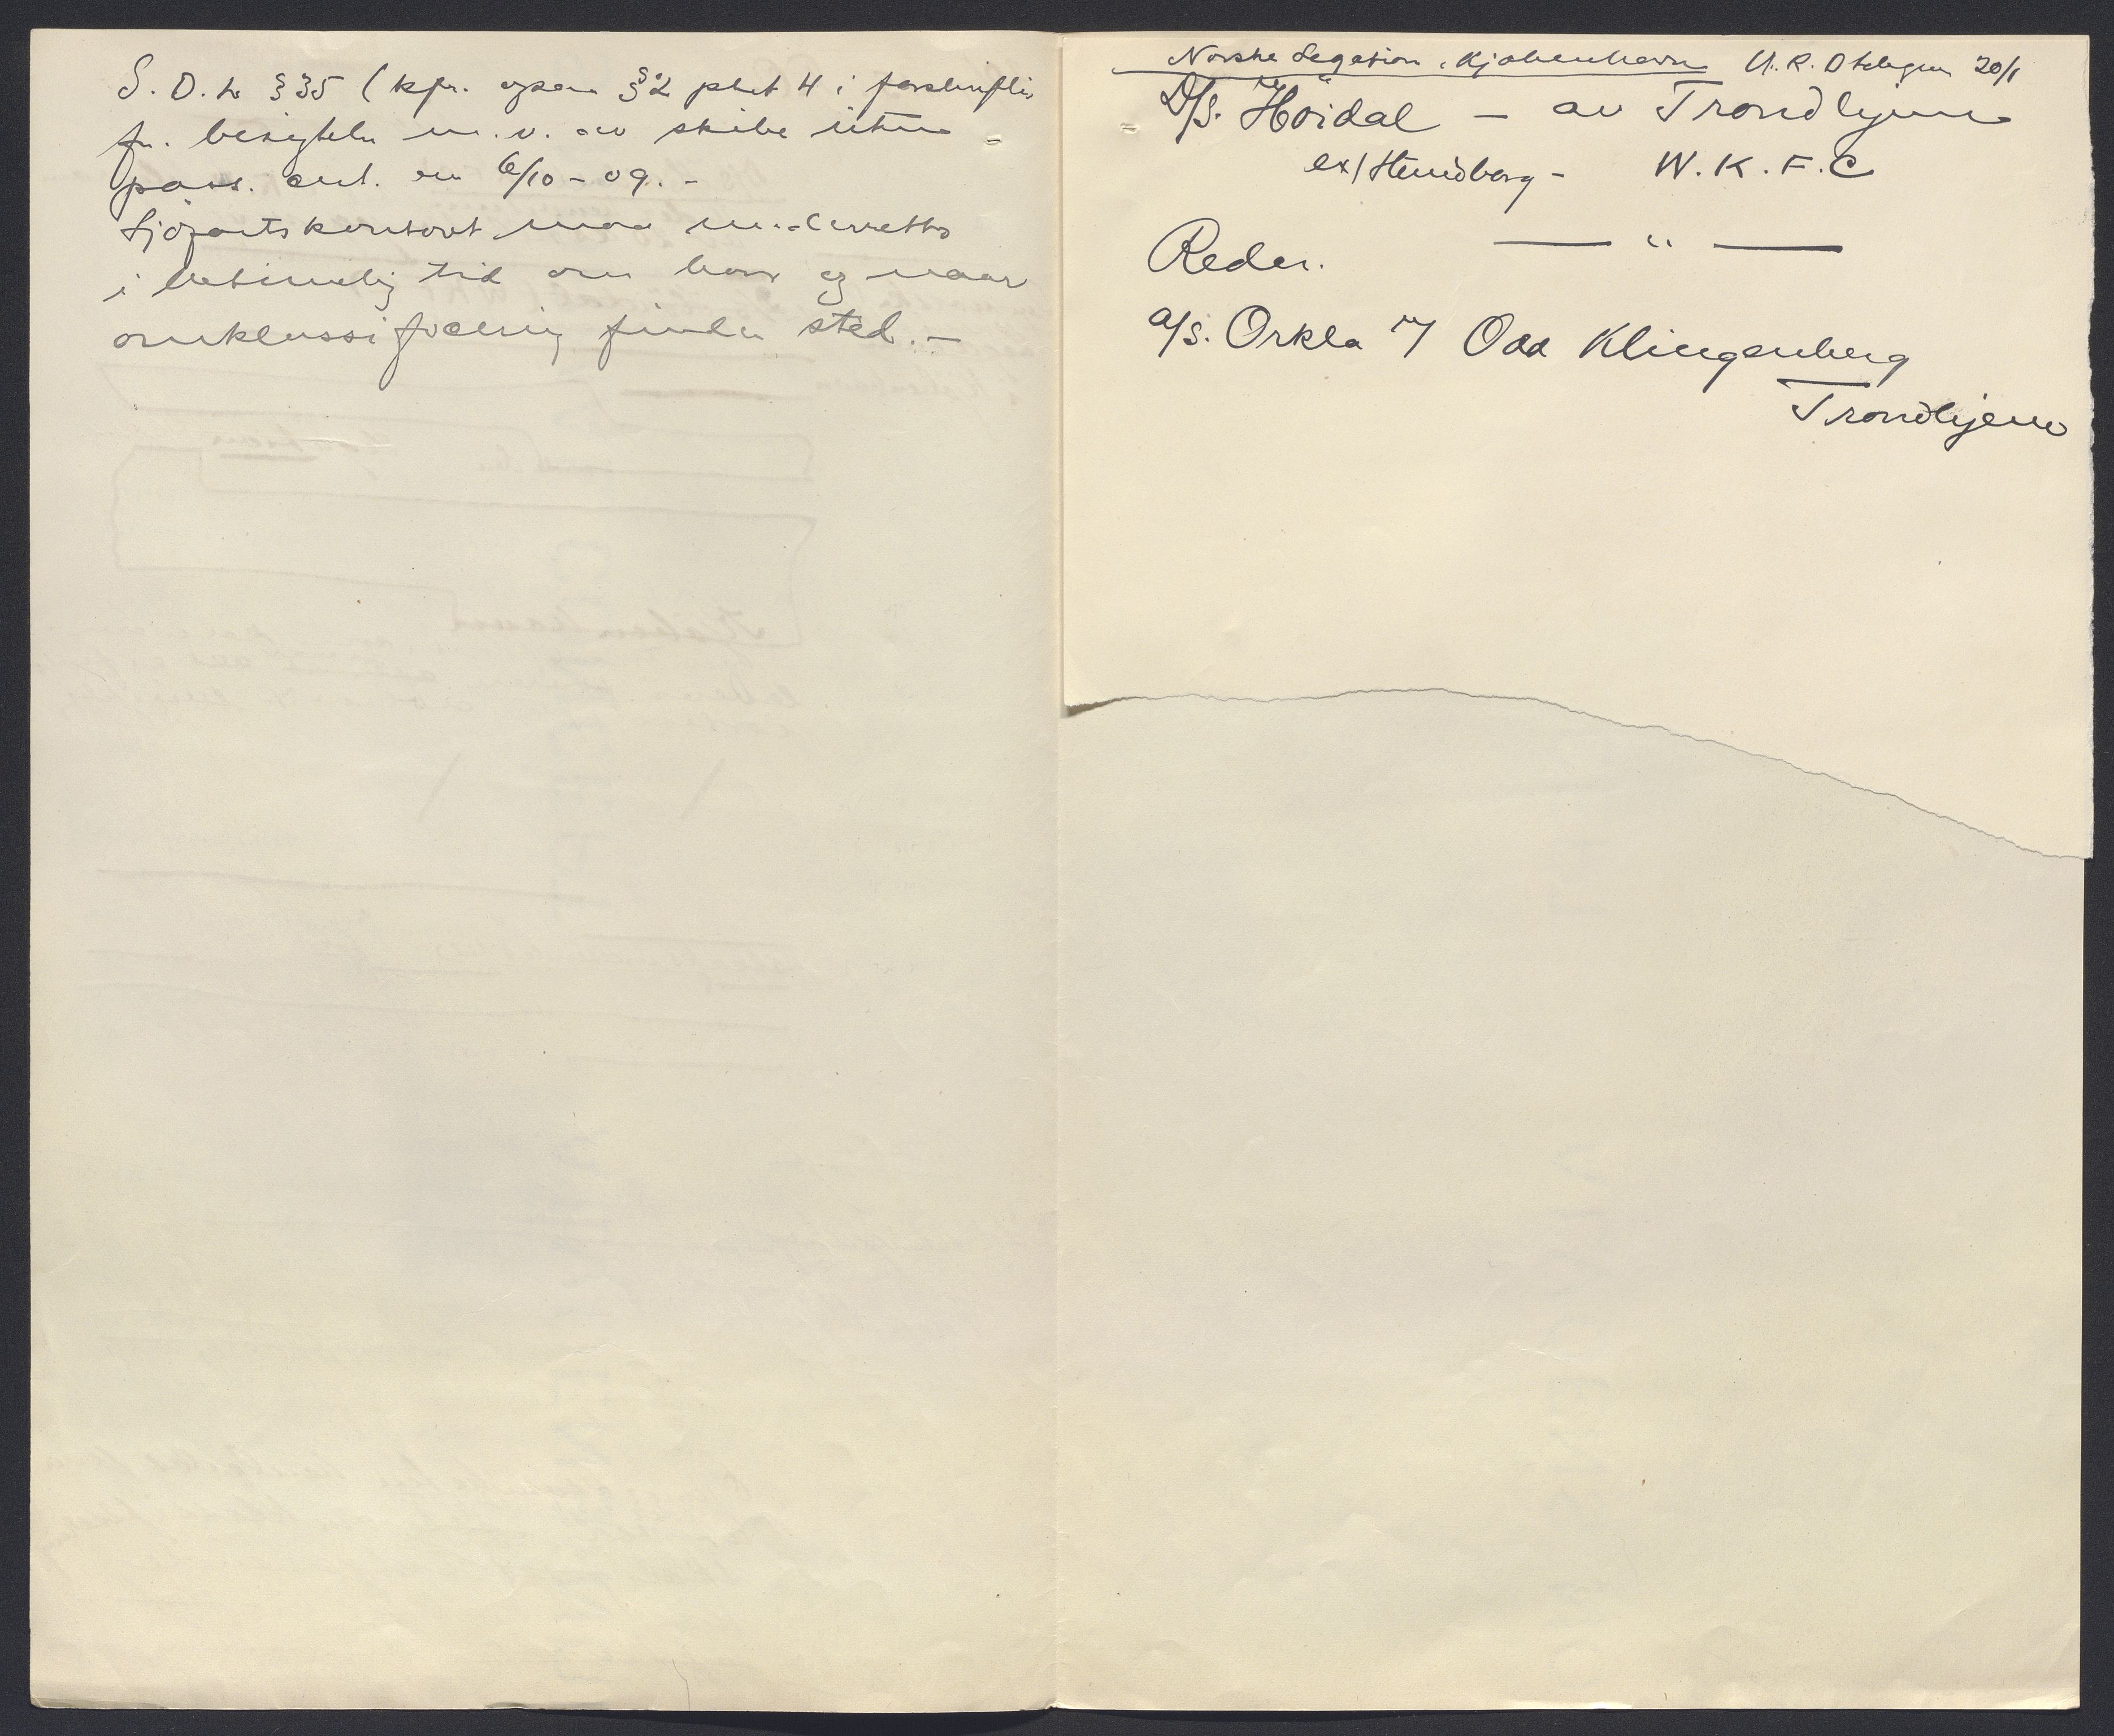 S. D. L. § 35 (kfr. ogsaa § 2 pkt 4 i forskrifter
fr. besigtelse m. v. av skibe uten
pass. cert. av 6/10 - 09. -
Sjøfartskontoret maa underrettes
i betimelig tid om hvor og naar
omklassificering finder sted. -
Norske Legation, Kjøbenhavn U. R. D telegram 20/1
D/S. "Høidal" - av Trondhjem
ex/ Hundborg - W. K. F. C
— " —
Reder.
A/S. Orkla v/ Odd Klingenberg
Trondhjem